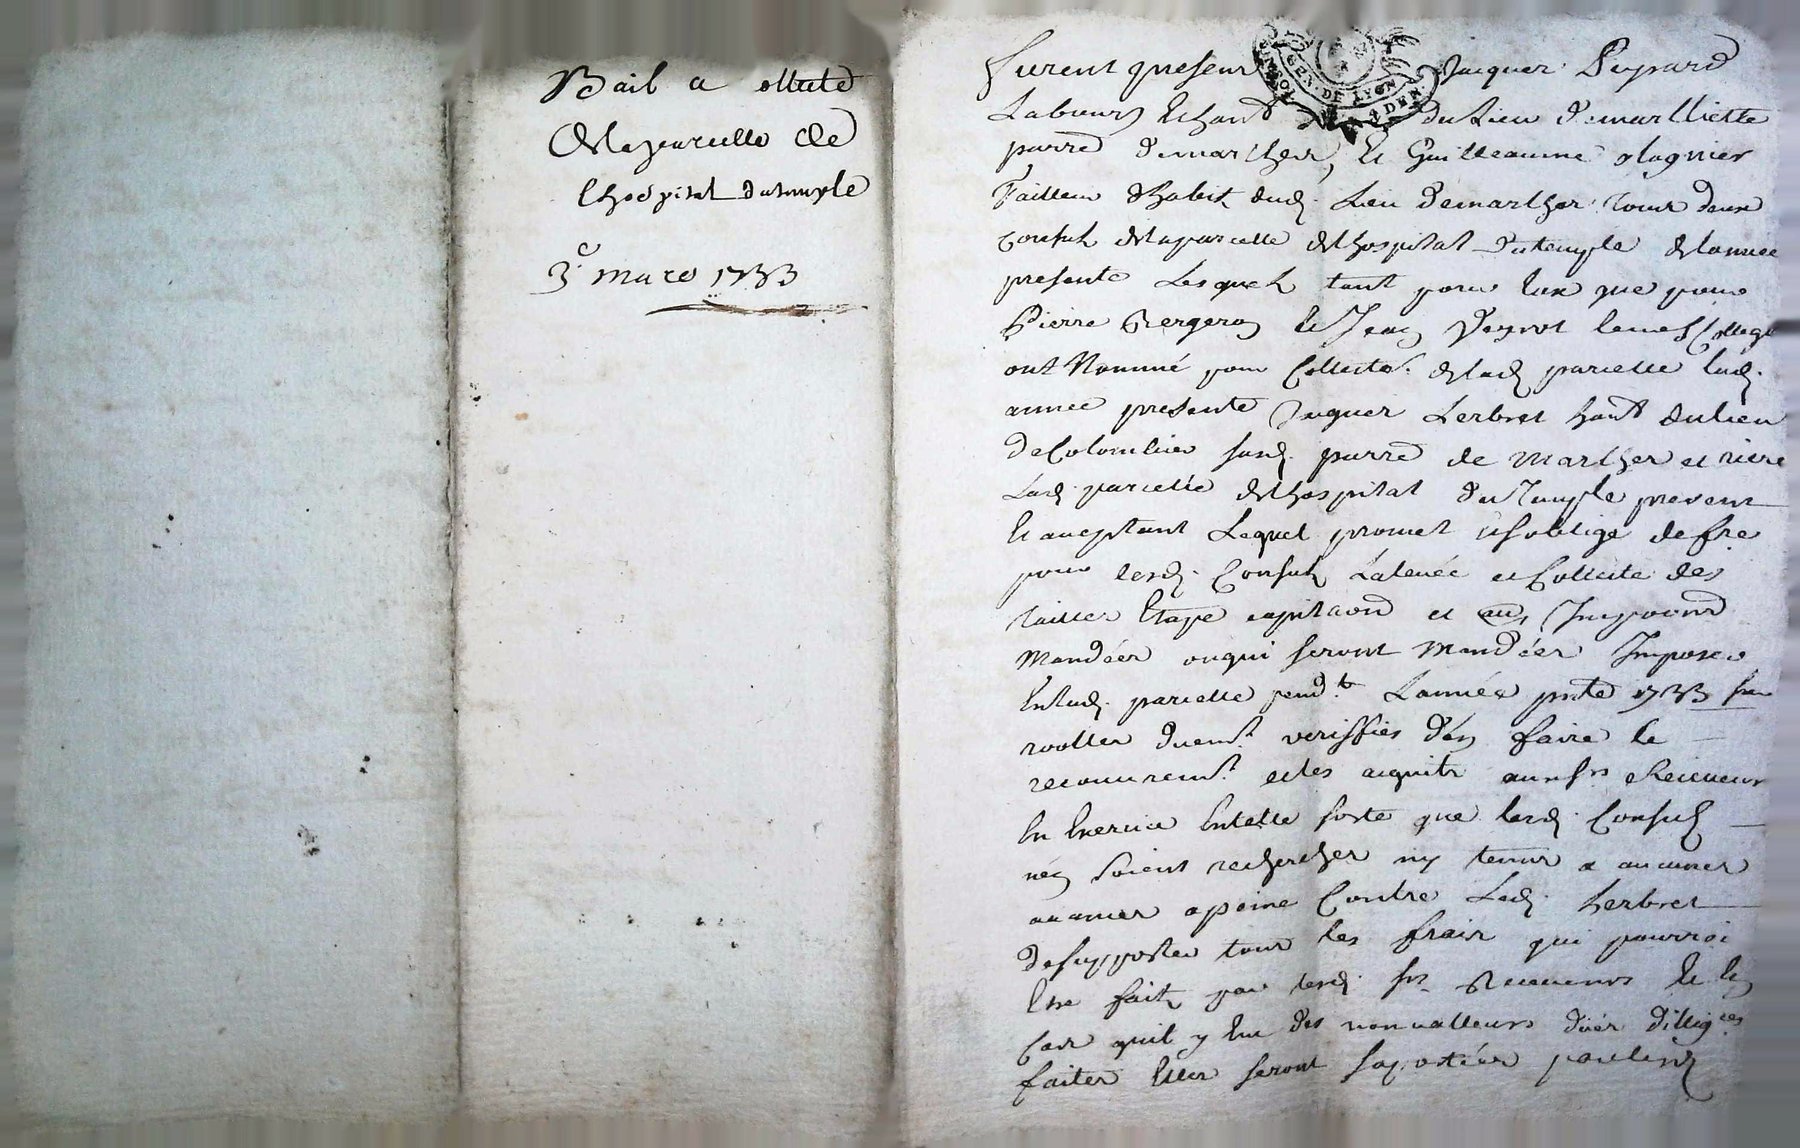 Bail a collecte
de la parcelle de
lhospital du temple
3e mars 1733
GEN. DE LYON
Furent presens Jacques Dupard
Laboureur du Lieu de marlliette
parre de marches, et Guilleaume
Tailleur dhabit dud. Lieu de marches tous deux
Consuls de la parcelle de lhospital du temple de lannee
presente Lesquels tant pour eux que pour
Pierre Bergeron et Jean leurs Collegue
ont Nommé pour Collecter. de lad. parcelle lad.
annee presente Jaques Lerbret habt du lieu
de Colombier susd. parre de Marches et riere
Lad. parcelle de lhospital du Temple present
Et aceptant Lequel promet et soblige de fre
pour lesd. Consuls La levée et Collecte des
tailles Etape capitaon et aus Impoons
Mandées ou qui seront Mandées Imposes
En lad. parcelle pendt Lannée pnte 1733
roolles duemt veriffiés den faire le
recouvremt et les acquits aux srs Receveurs
En Exercice En telle sorte que lesd. Consuls
nen soient recherches ny tenus a aucunes
avances a peine Contre Led. herbret
de supporter tous les frais qui pourroi
Etre faits par lesd. srs Receveurs Et En
Cas quil y Eue des non valleurs dues dilligces
faites Elles seront suportées par lesd